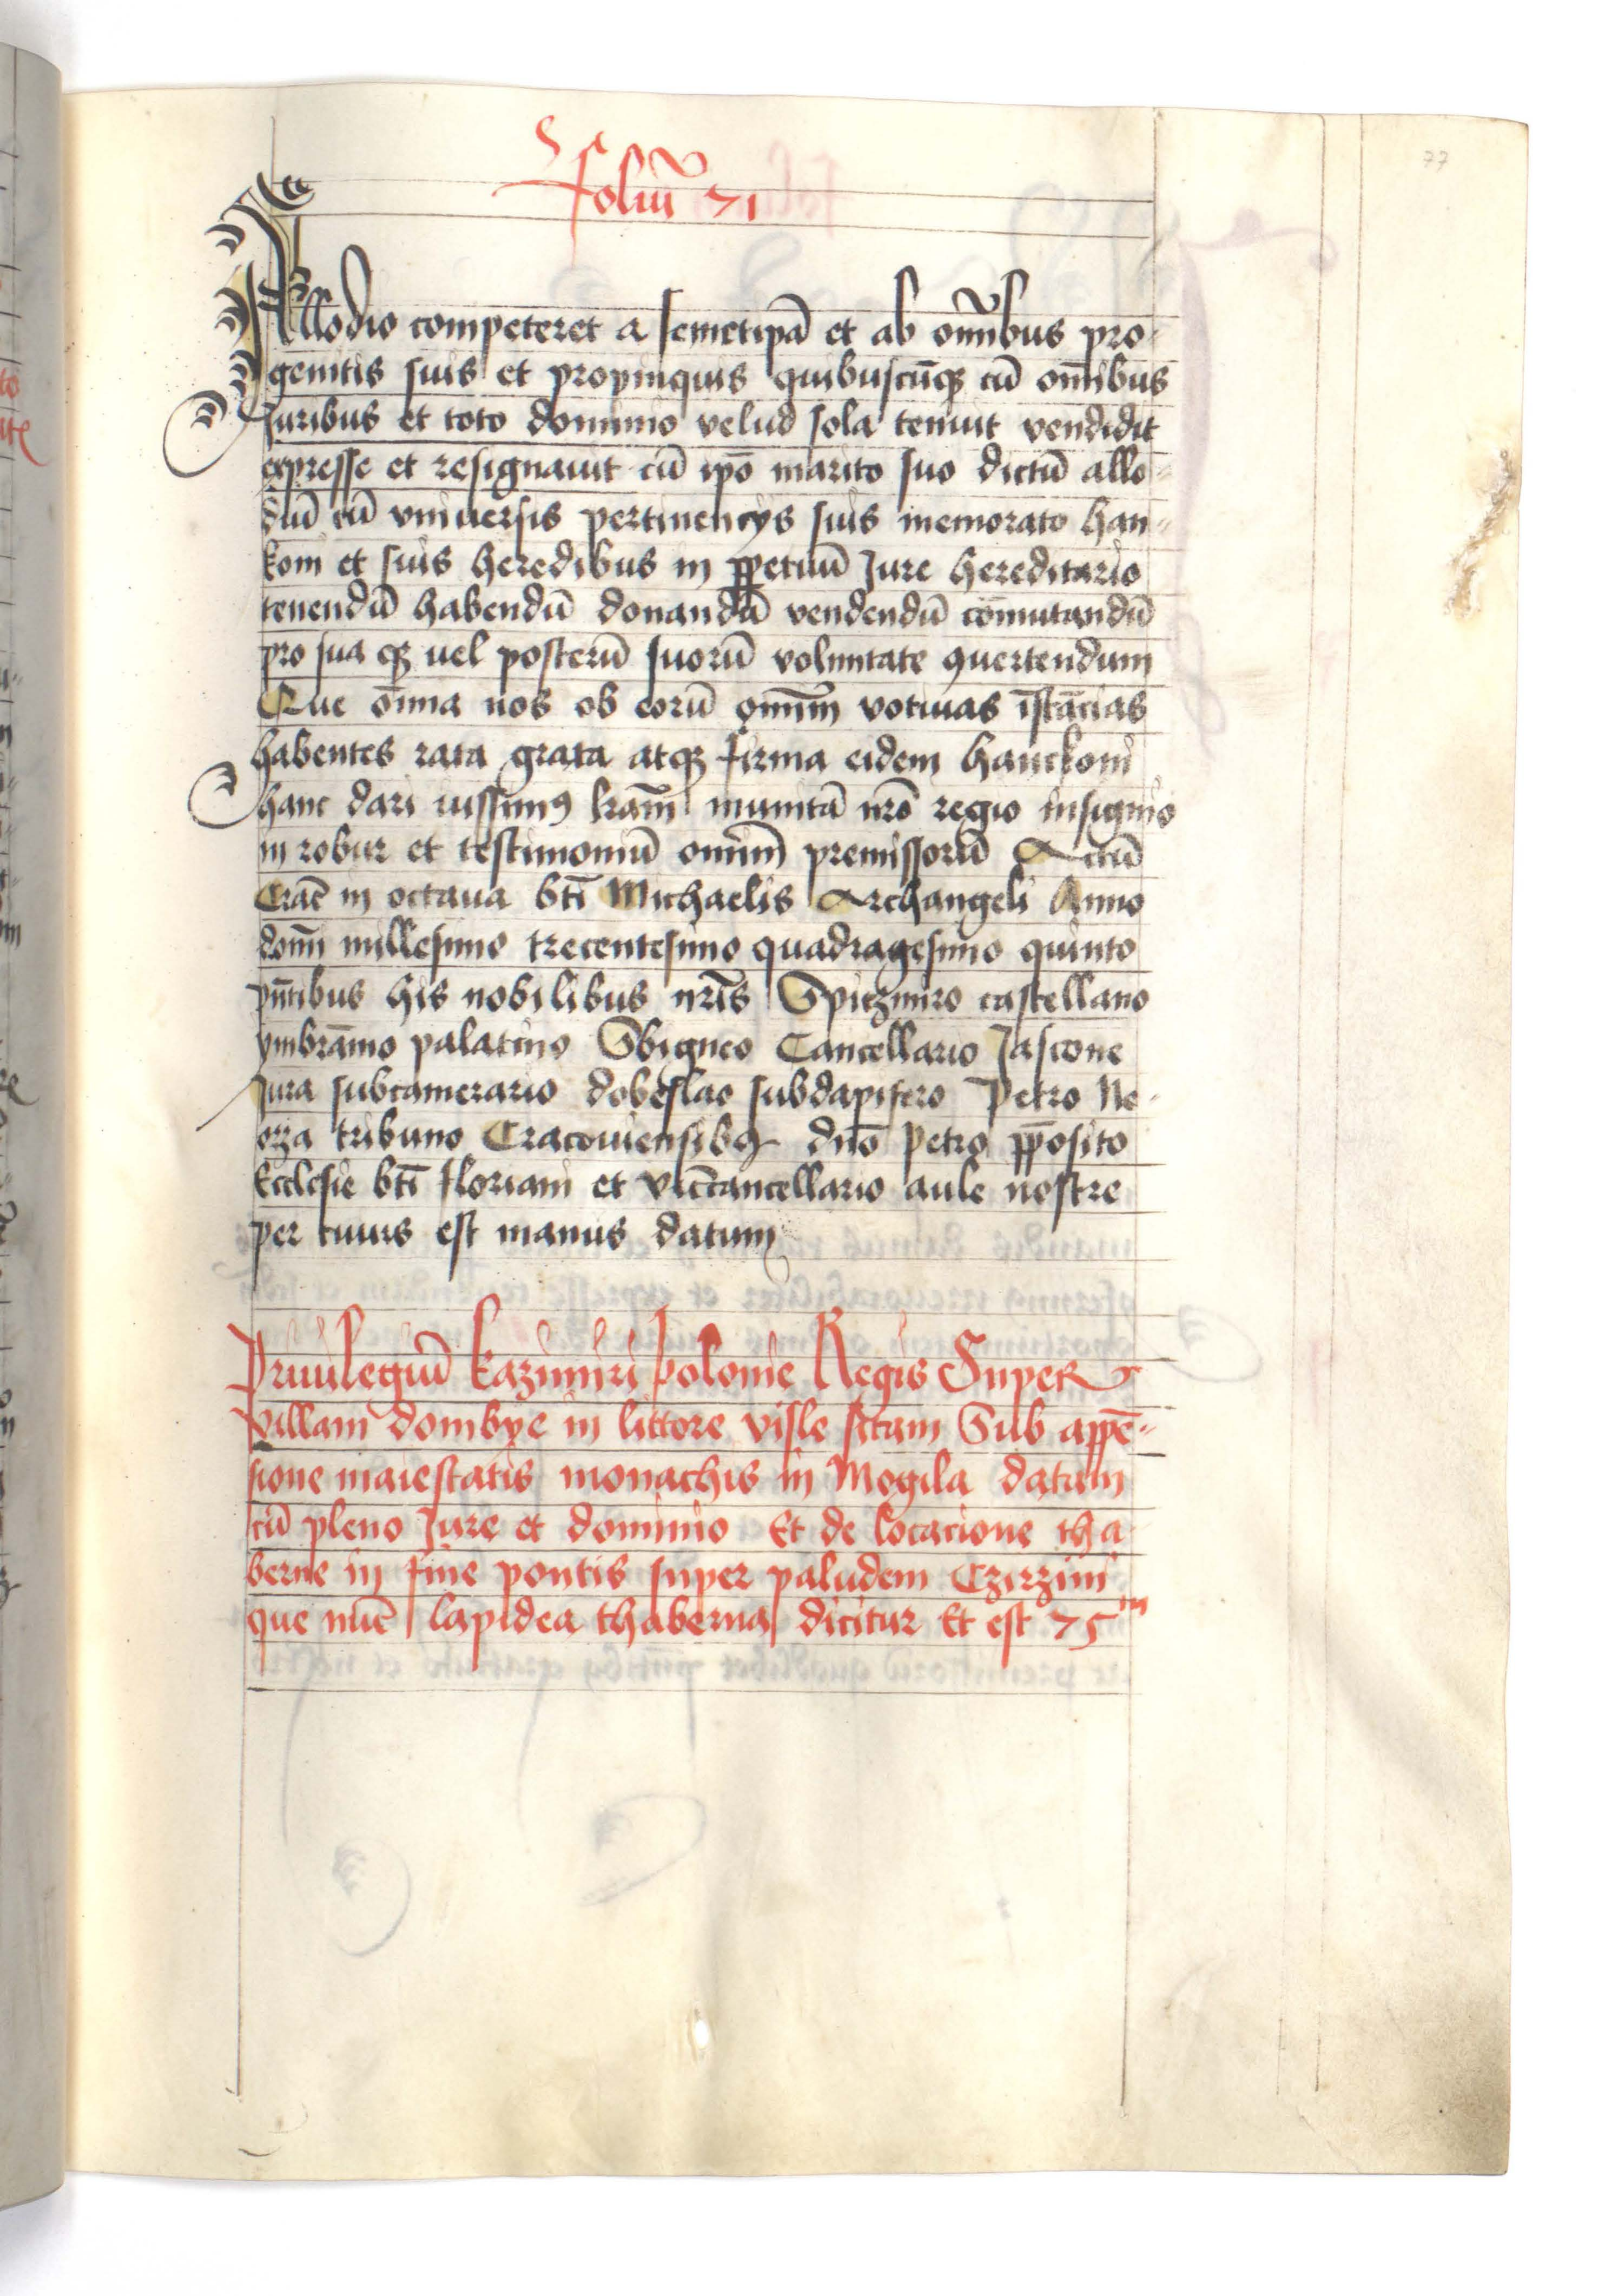 77
Foliū 71
Allodio competeret a semetipā et ab om̄ibus pro-
genitis suis et propinquis quibuscūqꝫ cū om̄ibus
Juribus et toto dominio velud sola tenuit vendidit
expresse et resignauit cū ipō marito suo dictū allo-
diū cū vniuersis pertinencijs suis memorato han-
koni et suis heredibus in ꝑpetuū Jure hereditario
tenendū habendū donandū vendendū cōmutandū
pro sua qꝫ uel posterū suorū voluntate ꝯuertendum
Que om̄ia nos ob eorū om̄im votiuas īstācias
habentes rata grata atqꝫ firma eidem hanckoni
hanc dari iussimꝰ lrām munitā nrō regio insignio
in robur et testimoniū omīm premissorū Actū
Crac̄ in octaua bt̄i Michaelis Archangeli Anno
domī millesimo trecentesimo quadragesimo quinto
pn̄tibus his nobilibus nrīs Spiczmiro castellano
ymbrāmo palatino Sbigneo Cancellario Jascone
Jura subcamerario dobeslao subdapifero Petro Ne-
orza tribuno Cracouiensibꝰ dnō Petro ꝓposito
Ecclesie bt̄i floriani et vic̄cancellario aule nostre
per cuius est manus datum
Priuilegiū kazimiri polonie Regis Super
villam dombye in littore visle sitam Sub appē-
sione maiestatis monachis in Mogila datum
cū pleno Jure et dominio Et de locacione tha
berne in fine pontis super paludem Czirzini
que nūc lapidea thaberna dicitur Et est 75m